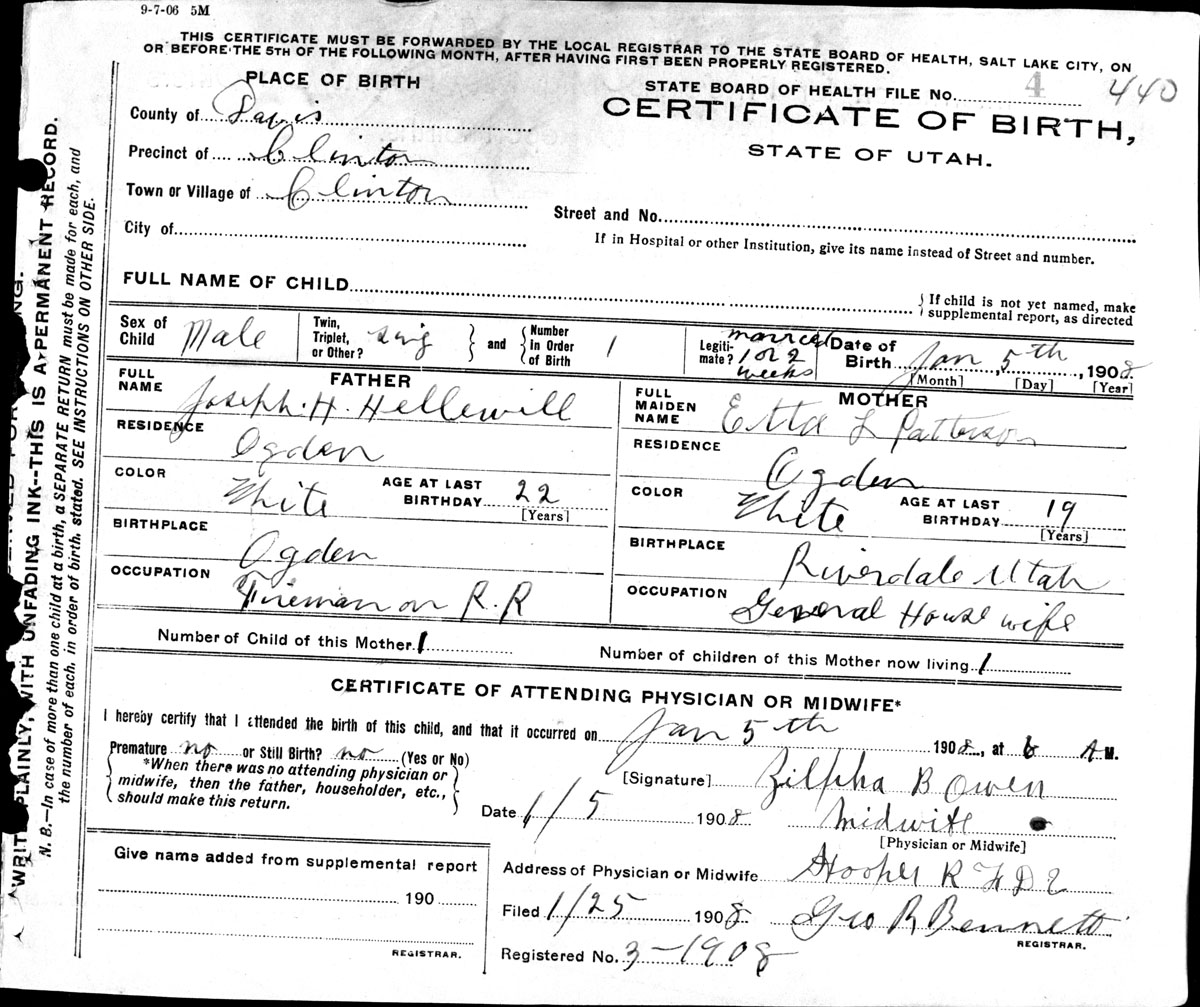 9-7-06 5M
THIS CERTIFICATE MUST BE FORWARDED BY THE LOCAL REGISTRAR TO THE STATE BOARD OF HEALTH, SALT LAKE CITY, ON
OR BEFORE THE 5TH OF THE FOLLOWING MONTH, AFTER HAVING FIRST BEEN PROPERLY REGISTERED.
PLACE OF BIRTH
STATE BOARD OF HEALTH FILE NO. 4 440
CERTIFICATE OF BIRTH,
STATE OF UTAH.
County of Davis
Precinct of Clinton
Town or Village of Clinton
City of
Street and No.
If in Hospital or other Institution, give its name instead of Street and number.
FULL NAME OF CHILD
If child is not yet named, make
supplemental report, as directed
Sex of Child Male
Twin, Triplet, or Other? sing
and
Number In Order of Birth 1
Legitimate? married 1 or 2 weeks
Date of Birth Jan 5th, 1908
[Month] [Day] [Year]
FATHER
FULL NAME Joseph. H. Hellewill
RESIDENCE Ogden
COLOR White
AGE AT LAST BIRTHDAY 22
[Years]
BIRTHPLACE Ogden
OCCUPATION Fireman on R.R
MOTHER
FULL MAIDEN NAME Etta L Patterson
RESIDENCE Ogden
COLOR White
AGE AT LAST BIRTHDAY 19
[Years]
BIRTHPLACE Riverdale Utah
OCCUPATION General House wife
Number of Child of this Mother 1
Number of children of this Mother now living 1
CERTIFICATE OF ATTENDING PHYSICIAN OR MIDWIFE*
I hereby certify that I attended the birth of this child, and that it occurred on Jan 5th 1908, at 6 A M.
Premature no or Still Birth? no (Yes or No)
*When there was no attending physician or
midwife, then the father, householder, etc.,
should make this return.
[Signature] Zilpha B Owen
Date 1/5 1908
Midwife
[Physician or Midwife]
Give name added from supplemental report
190
REGISTRAR.
Address of Physician or Midwife Hooper R F D
Filed 1/25 1908 Geo R Bennett
REGISTRAR.
Registered No. 3-1908
WRITE PLAINLY, WITH UNFADING INK--THIS IS A PERMANENT RECORD.
N. B.—In case of more than one child at a birth, a SEPARATE RETURN must be made for each, and
the number of each, in order of birth, stated. SEE INSTRUCTIONS ON OTHER SIDE.